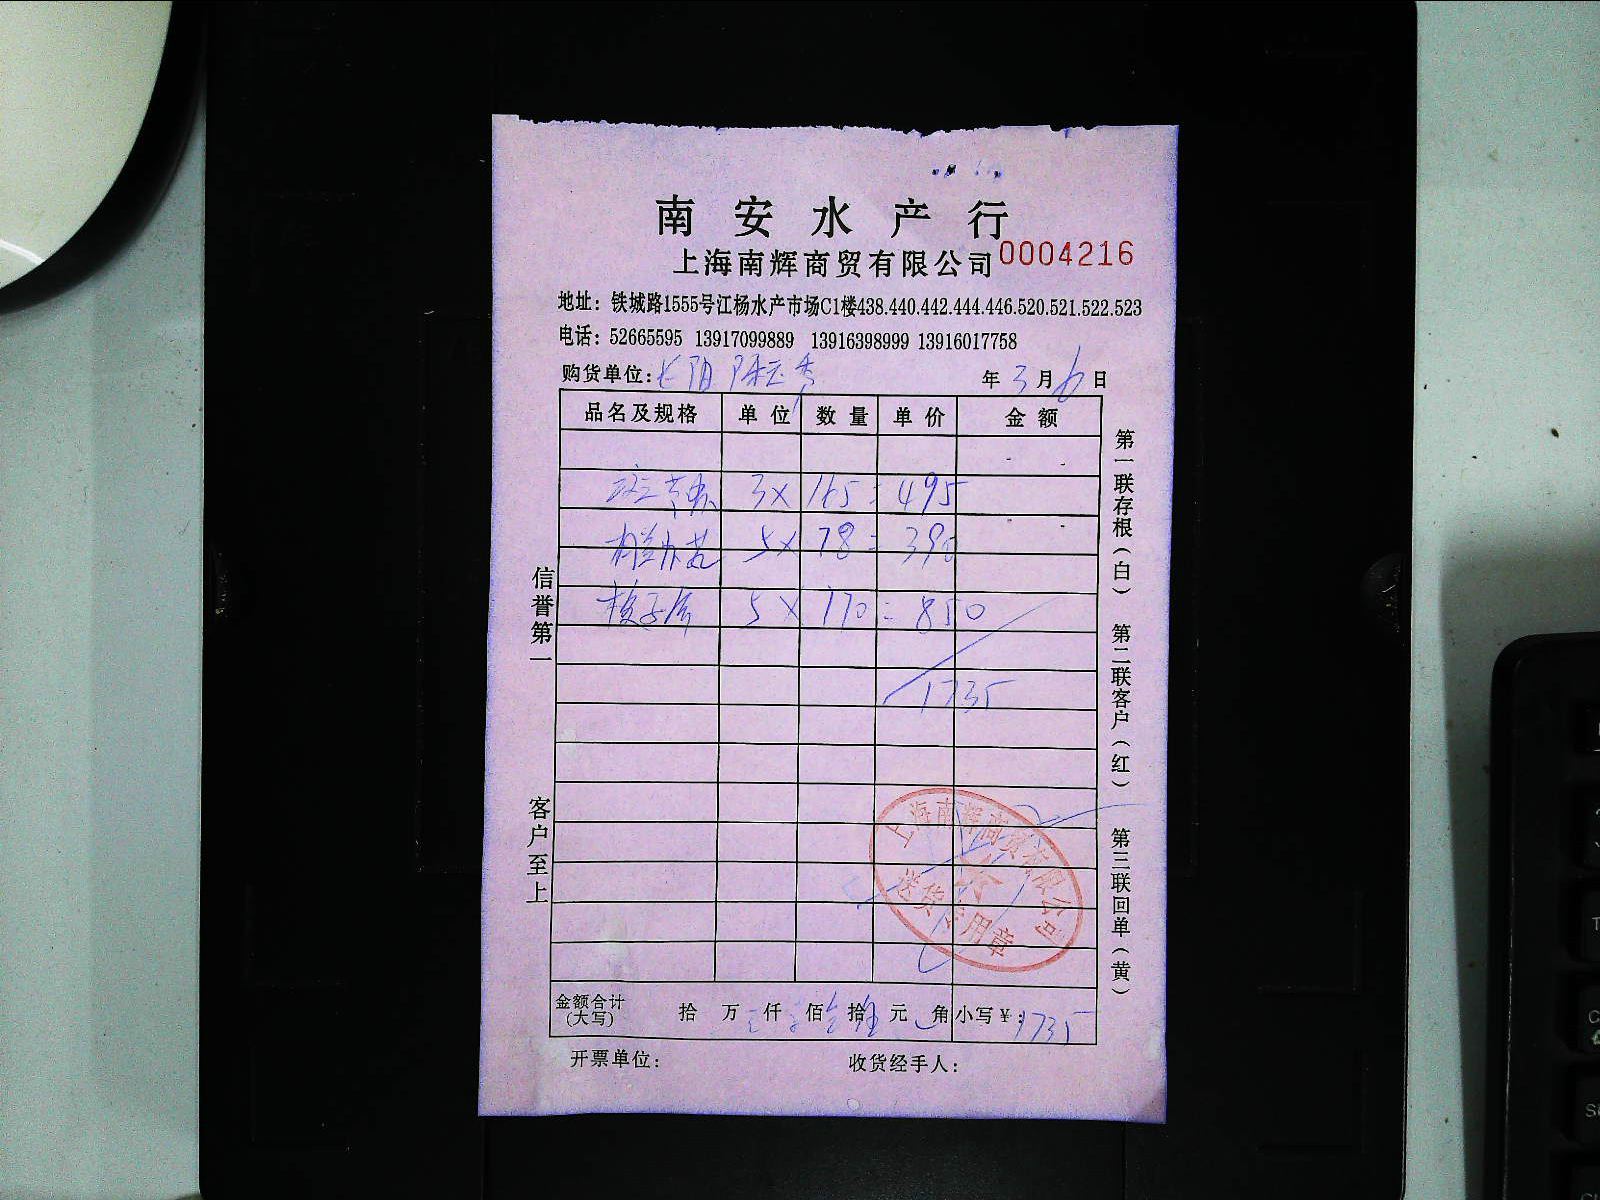 南安水产行
上海南辉商贸有限公司 0004216
地址：铁城路1555号江杨水产市场C1楼438.440.442.444.446.520.521.522.523
电话：52665595 13917099889 13916398999 13916017758
购货单位： 年 3 月 6 日
品名及规格 单位 数量 单价 金额
3 × 165 = 495
5 × 78 = 390
5 × 170 = 850
1735
金额合计（大写） 拾 万 仟 佰 拾 元 角 小写￥：1735
开票单位： 收货经手人：
信誉第一
客户至上
第一联存根（白）
第二联客户（红）
第三联回单（黄）
上海南辉商贸有限公司
送货专用章